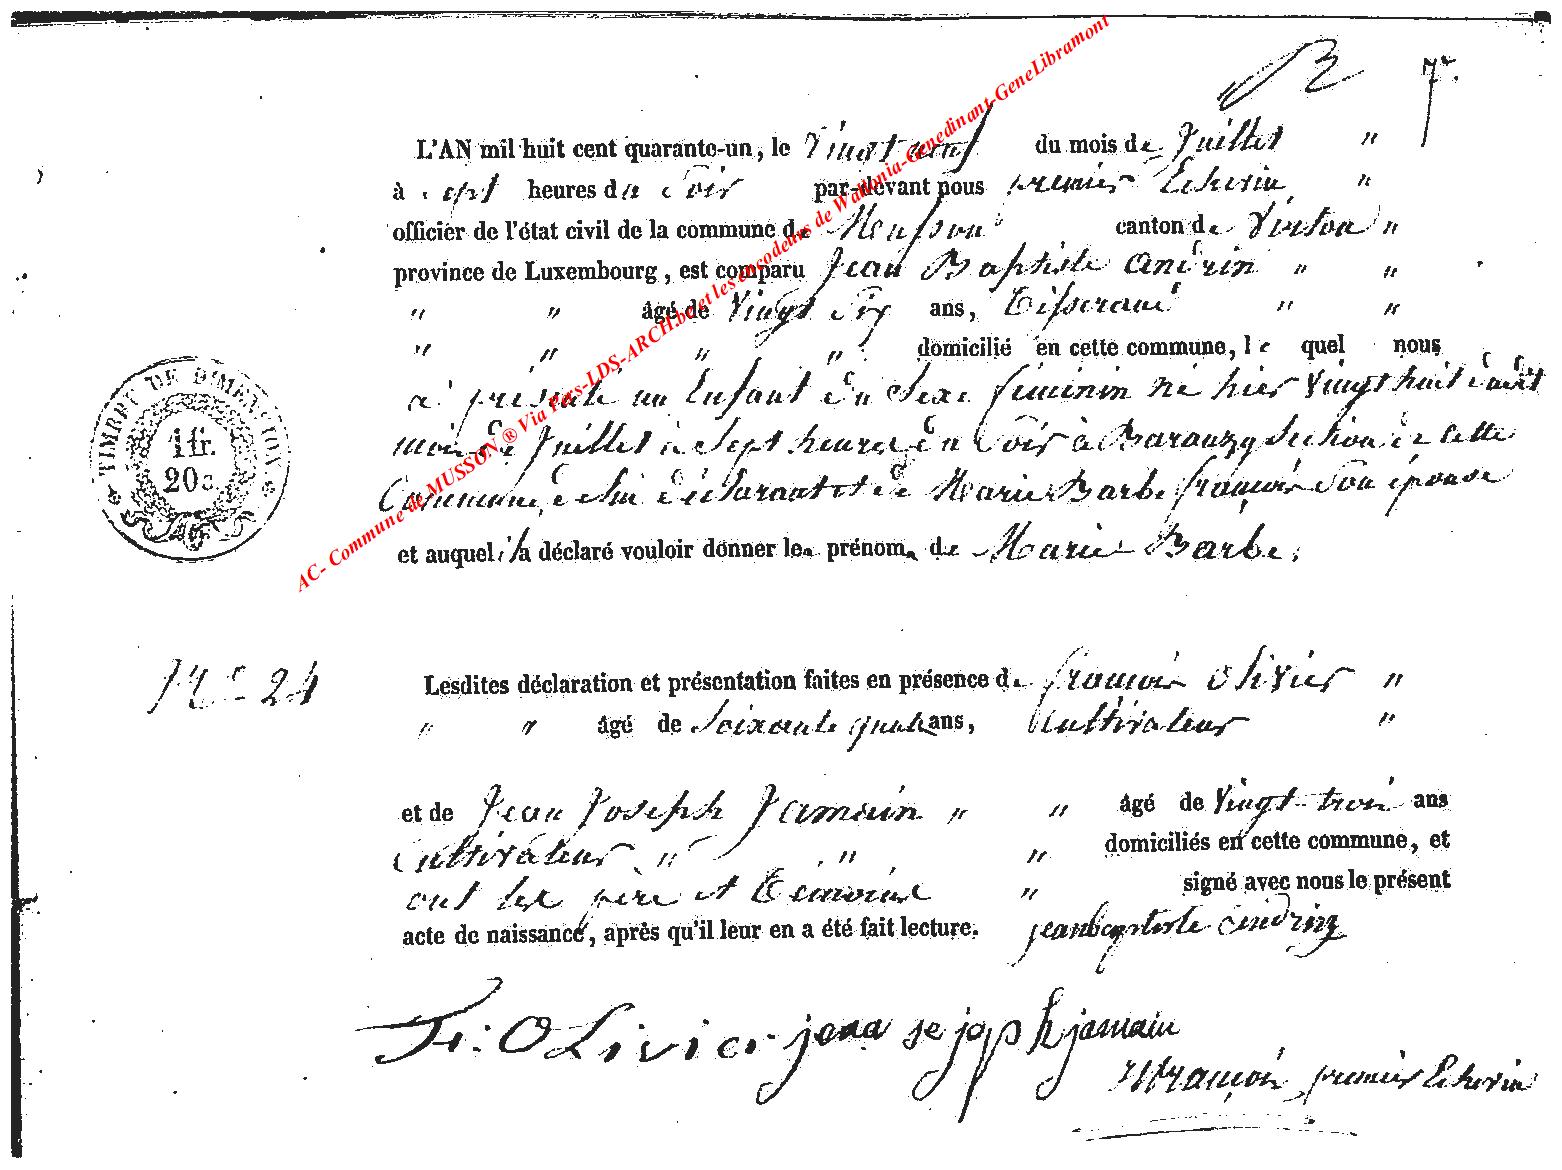 7e.
L'AN mil huit cent quarante-un, le Vingt neuf du mois de Juillet "
à sept heures du Soir par-devant nous premier Echevin "
officier de l'état civil de la commune de Mousson canton de Virton "
province de Luxembourg, est comparu Jean Baptiste andrin " "
" " âgé de Vingt Six ans, Tisserand " "
" " " " domicilié en cette commune, le quel nous
a présenté un Enfant du Sexe féminin né hier Vingt huit dudit
mois de Juillet à Sept heures du Soir à Baranzy Section de cette
Commune, de lui déclarant et de Marie Barbe françois Son épouse
et auquel il a déclaré vouloir donner les prénoms de Marie Barbe.
TIMBRE DE DIMENSION
1 fr.
20 c.
AC- Commune de MUSSON ® Via Pers-LDS-ARCH.be et les encodeurs de Wallonia-Genedinant-GeneLibramont
No 24
Lesdites déclaration et présentation faites en présence de françois Olivier "
" " âgé de Soixante quatre ans, Cultivateur "
et de Jean Joseph Jamain " " âgé de Vingt-trois ans
Cultivateur " " " domiciliés en cette commune, et
ont les père et Témoins " signé avec nous le présent
acte de naissance, après qu'il leur en a été fait lecture. jeanbaptiste andring
Fr: OLivier jean jo joseph jamain
françois premier Echevin